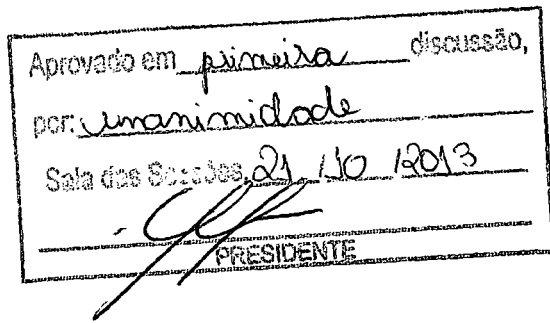 Aprovado em primeira discussão,
por: unanimidade
Sala das Sessões, 21 / 10 / 2013
PRESIDENTE